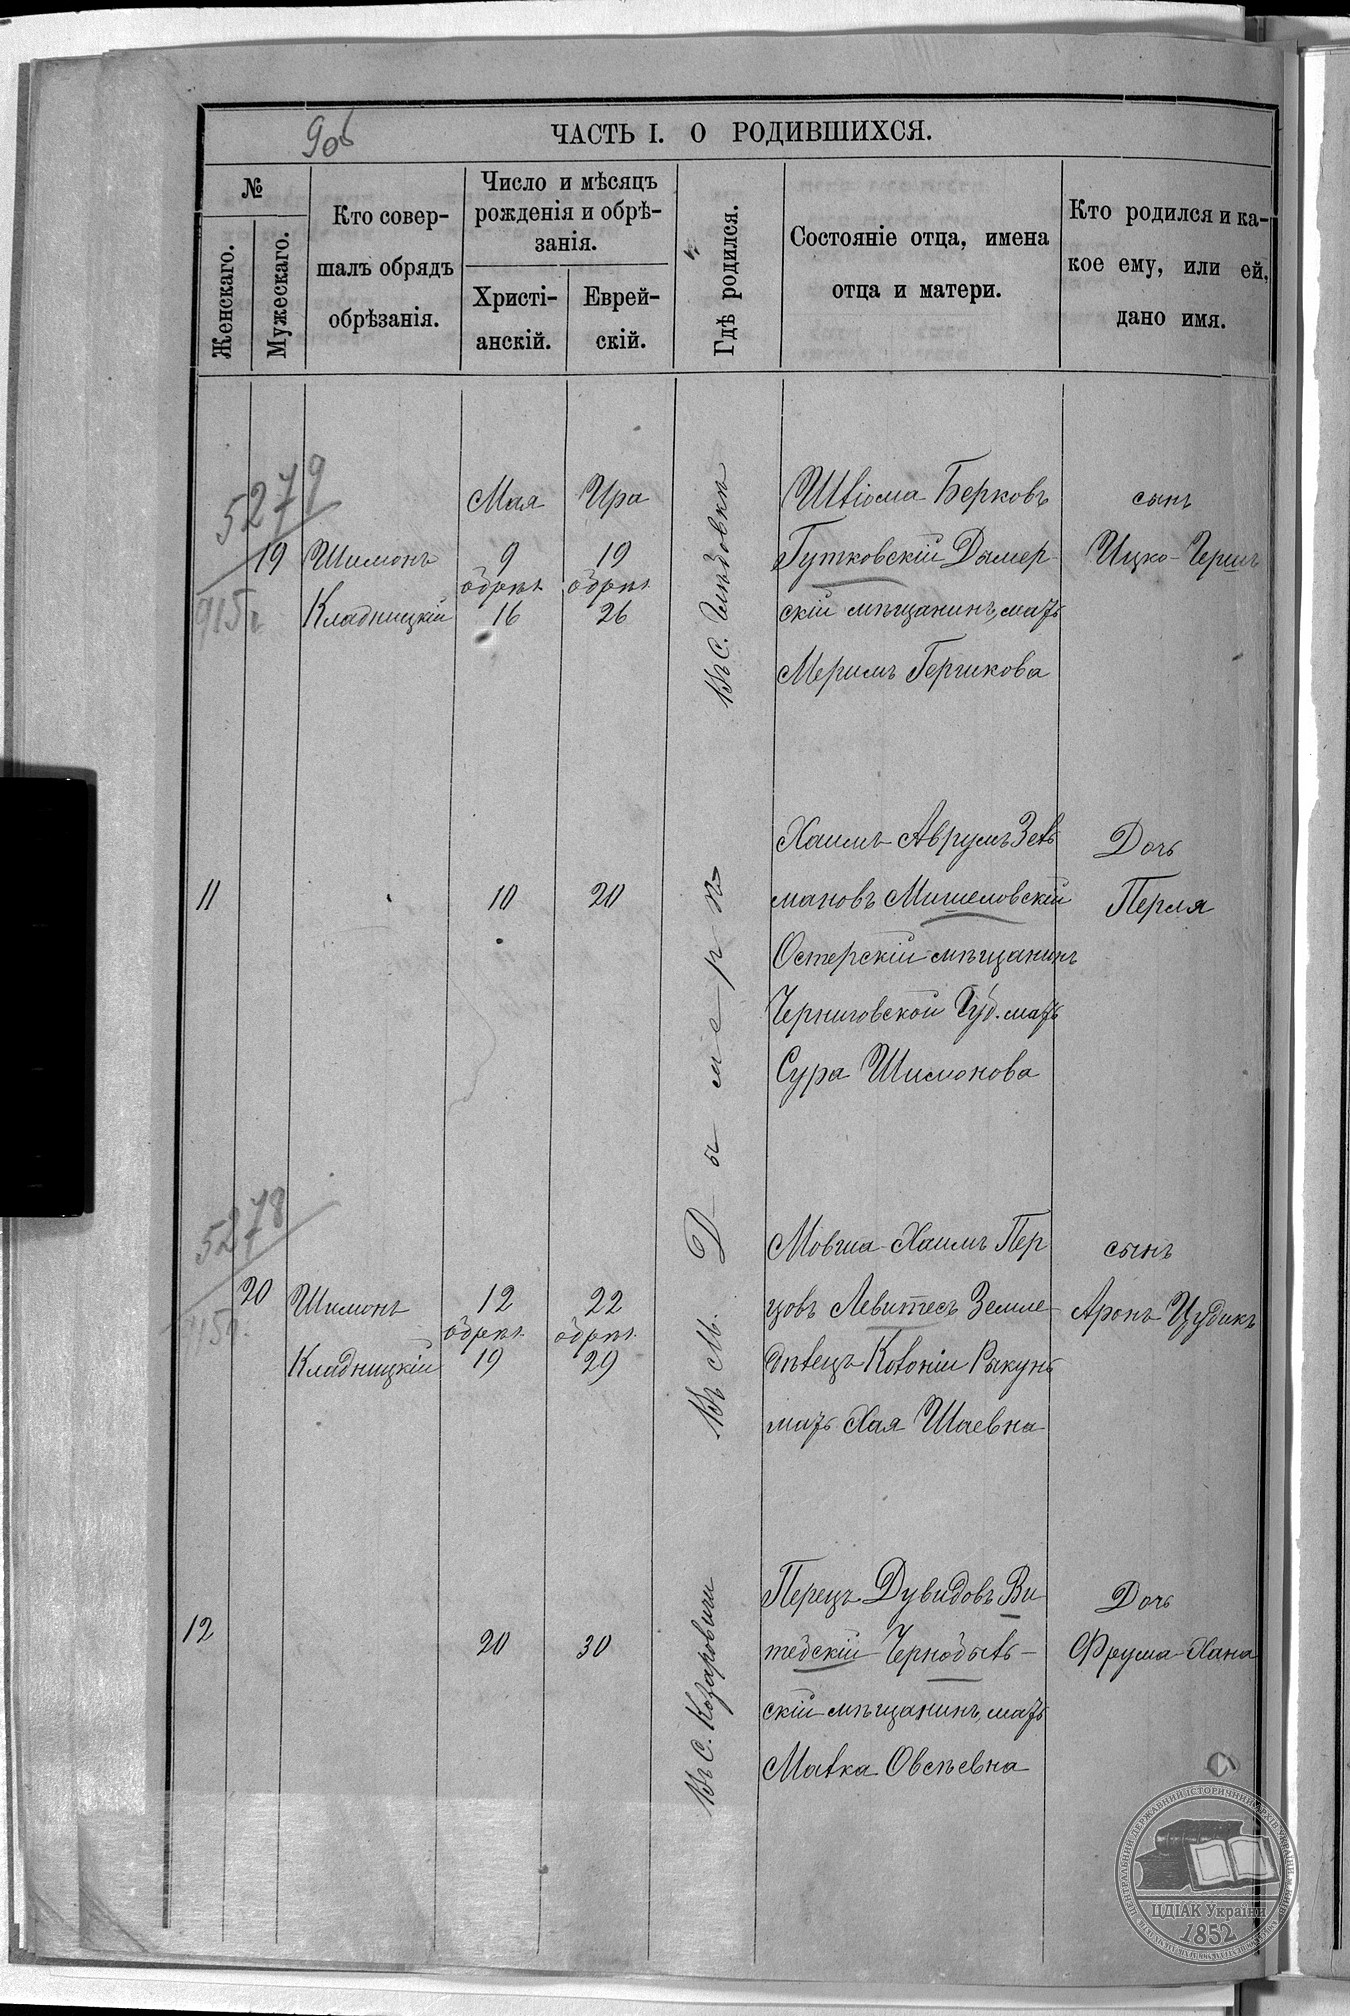 906
ЧАСТЬ I. О РОДИВШИХСЯ.
№
Женскаго.
Мужескаго.
Кто совер-
шалъ обрядъ
обрѣзанія.
Число и мѣсяцъ
рожденія и обрѣ-
занія.
Христі-
анскій.
Еврей-
скій.
Гдѣ родился.
Состояніе отца, имена
отца и матери.
Кто родился и ка-
кое ему, или ей,
дано имя.
5279
915г
19
Шимонъ
Кладницкій
Мая
9
обрѣз.
16
Ира
19
обрѣз.
26
Въ с.
Шліома Берковъ
Гутковскій Дымер-
скій мѣщанинъ, мать
Меримъ Гершкова
сынъ
Ицко-Гершъ
11
10
20
Въ м. Дымерѣ
Хаимъ-Аврумъ Зель
мановъ Мишеловскій
Остерскій мѣщанинъ
Черниговской Губ. мать
Сура Шимонова
Дочь
Перля
5278
915г.
20
Шимонъ
Кладницкій
12
обрѣз.
19
22
обрѣз.
29
Мовша-Хаимъ Пер
цовъ Левитесъ Земле-
дѣлецъ Колоніи Рыкунь
мать Хая Шаевна
сынъ
Аронъ Цудикъ
12
20
30
Въ с. Козаровичи
Перецъ Дувидовъ Ви
тебскій Чернобыль-
скій мѣщанинъ, мать
Малка Овсѣевна
Дочь
Фрума-Хана
ЦЕНТРАЛЬНИЙ ДЕРЖАВНИЙ ІСТОРИЧНИЙ АРХІВ УКРАЇНИ, М. КИЇВ
ЦДІАК України
1852